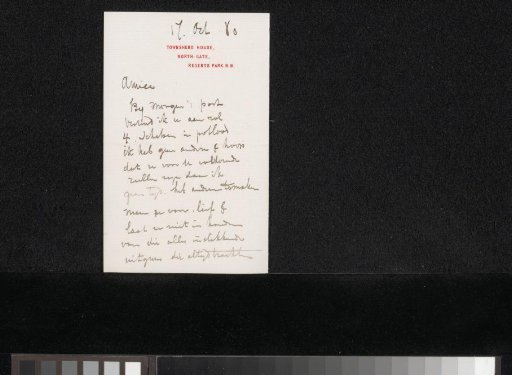 17 Oct 80
TOWNSHEND HOUSE,
NORTH GATE,
REGENTS PARK N.W.
Amice
By morgen's post
verzend ik u aan rol
4 schetsen in potlood
ik heb geen andere & hoop
dat ze voor U voldoende
zullen zijn daar ik
geen tijd heb andere te maken
neem ze voor lief &
laat ze niet in handen
van die alles
uitgever die altijd